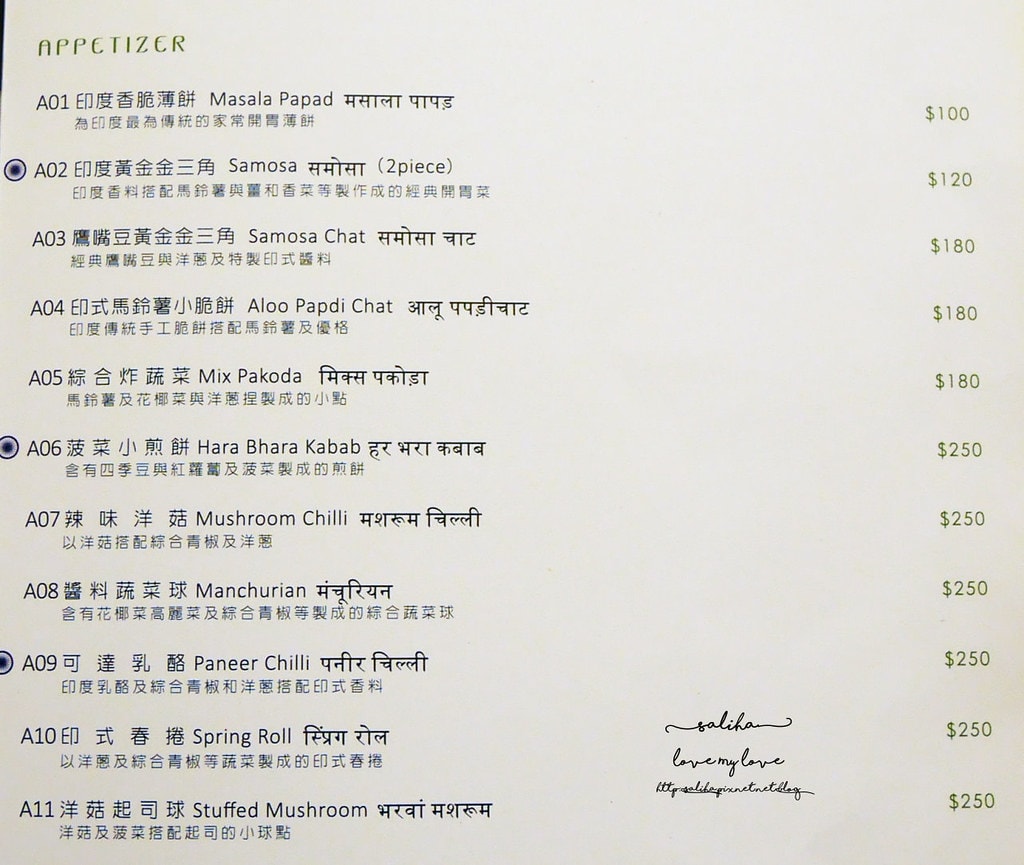 APPETIZER
A01 印度香脆薄餅 Masala Papad मसाला पापड़ $100
為印度最為傳統的家常開胃薄餅
A02 印度黃金金三角 Samosa समोसा (2piece) $120
印度香料搭配馬鈴薯與薑和香菜等製作成的經典開胃菜
A03 鷹嘴豆黃金金三角 Samosa Chat समोसा चाट $180
經典鷹嘴豆與洋蔥及特製印式醬料
A04 印式馬鈴薯小脆餅 Aloo Papdi Chat आलू पपड़ीचाट $180
印度傳統手工脆餅搭配馬鈴薯及優格
A05 綜合炸蔬菜 Mix Pakoda मिक्स पकोड़ा $180
馬鈴薯及花椰菜與洋蔥捏製成的小點
A06 菠菜小煎餅 Hara Bhara Kabab हर भरा कबाब $250
含有四季豆與紅蘿蔔及菠菜製成的煎餅
A07 辣味洋菇 Mushroom Chilli मशरूम चिल्ली $250
以洋菇搭配綜合青椒及洋蔥
A08 醬料蔬菜球 Manchurian मंचूरियन $250
含有花椰菜高麗菜及綜合青椒等製成的綜合蔬菜球
A09 可達乳酪 Paneer Chilli पनीर चिल्ली $250
印度乳酪及綜合青椒和洋蔥搭配印式香料
A10 印式春捲 Spring Roll स्प्रिंग रोल $250
以洋蔥及綜合青椒等蔬菜製成的印式春捲
A11 洋菇起司球 Stuffed Mushroom भरवां मशरूम $250
洋菇及菠菜搭配起司的小球點
saliha
love my love
http:saliha.pixnet.net.blog